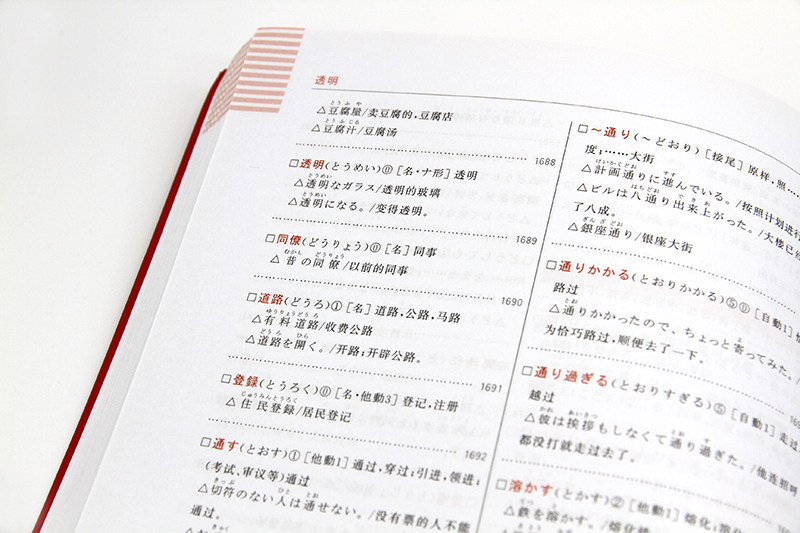 透明
△豆腐屋/卖豆腐的,豆腐店
△豆腐汁/豆腐汤
1688
□透明(とうめい)⓪[名・ナ形]透明
△透明なガラス/透明的玻璃
△透明になる。/变得透明。
1689
□同僚(どうりょう)⓪[名]同事
△昔の同僚/以前的同事
1690
□道路(どうろ)①[名]道路,公路,马路
△有料道路/收费公路
△道路を開く。/开路;开辟公路。
1691
□登録(とうろく)⓪[名・他動3]登记,注册
△住民登録/居民登记
1692
□通す(とおす)①[他動1]通过,穿过;引进,领进;
(考试、审议等)通过
△切符のない人は通せない。/没有票的人不能
通过。
□~通り(~どおり)[接尾]原样,照……
度;……大街
△計画通りに進んでいる。/按照计划进行
△ビルは八通り出来上がった。/大楼已
了八成。
△銀座通り/银座大街
□通りかかる(とおりかかる)⑤⓪[自動1]
路过
△通りかかったので、ちょっと寄ってみた。/
为恰巧路过,顺便去了一下。
□通り過ぎる(とおりすぎる)⑤[自動1]走过
越过
△彼は挨拶もしなくて通り過ぎた。/他连招呼
都没打就走过去了。
□溶かす(とかす)②[他動1]熔化;溶
△鉄を溶かす。/熔化铁